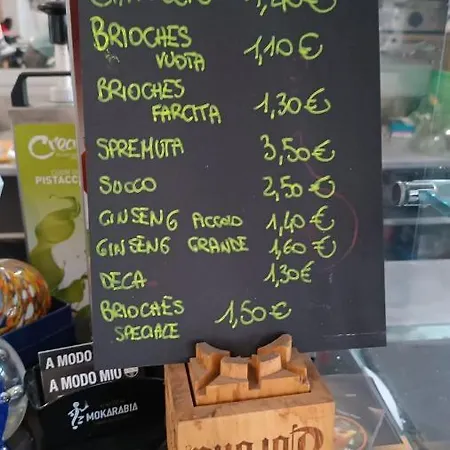 1,40 €
BRIOCHES VUOTA 1,10 €
BRIOCHES FARCITA 1,30 €
SPREMUTA 3,50 €
SUCCO 2,50 €
GINSENG PICCOLO 1,40 €
GINSENG GRANDE 1,60 €
DECA 1,30 €
BRIOCHES SPECIALE 1,50 €
PISTACC
A MODO
A MODO MIO
MOKARABIA